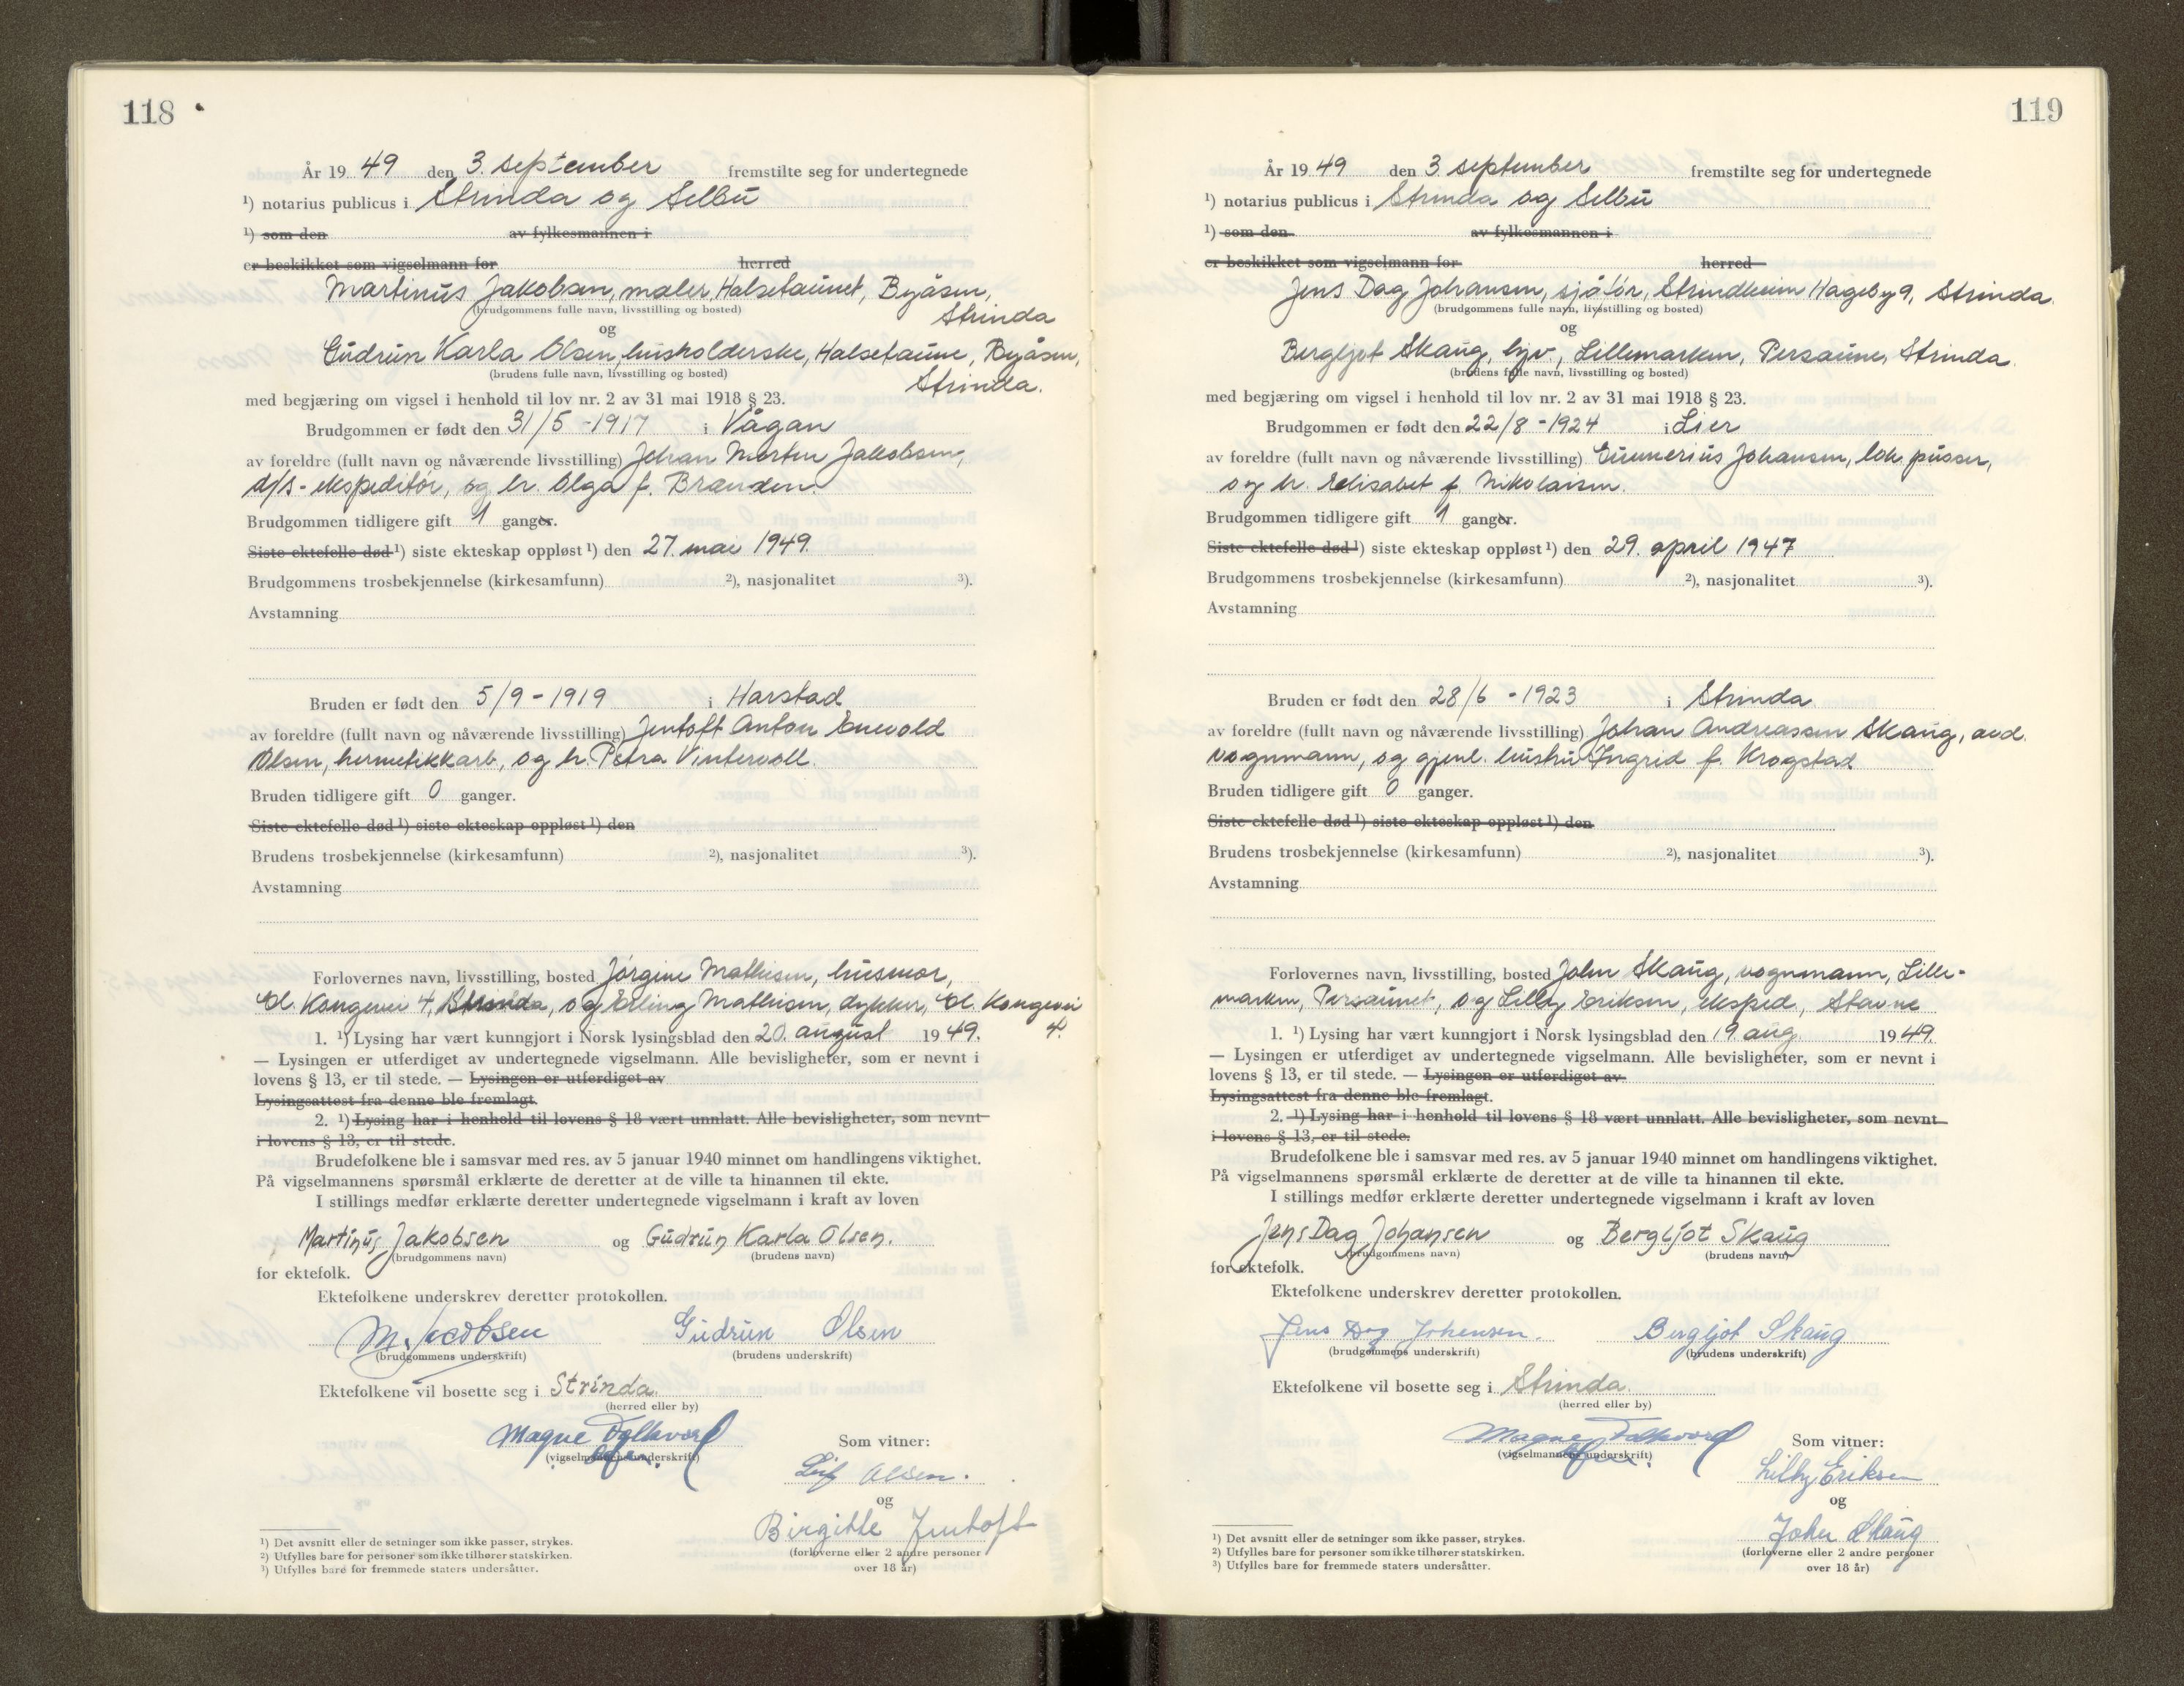 118
År 19 49 den 3. september fremstilte seg for undertegnede
¹) notarius publicus i Strinda og Selbu
¹) som den av fylkesmannen i
er beskikket som vigselmann for herred
Martinus Jakobsen, maler, Halsetaunet, Byåsen,
(brudgommens fulle navn, livsstilling og bosted)
Strinda
og
Gudrun Karla Olsen, husholderske, Halsetaune, Byåsen,
(brudens fulle navn, livsstilling og bosted)
Strinda.
med begjæring om vigsel i henhold til lov nr. 2 av 31 mai 1918 § 23.
Brudgommen er født den 31/5 - 1917 i Vågan
av foreldre (fullt navn og nåværende livsstilling) Johan Morten Jakobsen,
d/s-ekspeditør, og h. Olga f. Brandsen.
Brudgommen tidligere gift 1 ganger.
Siste ektefelle død ¹) siste ekteskap oppløst ¹) den 27. mai 1949.
Brudgommens trosbekjennelse (kirkesamfunn) ²), nasjonalitet ³).
Avstamning
Bruden er født den 5/9 - 1919 i Harstad
av foreldre (fullt navn og nåværende livsstilling) Jentoft Anton Enevold
Olsen, hermetikkarb, og h. Petra Vintervoll.
Bruden tidligere gift 0 ganger.
Siste ektefelle død ¹) siste ekteskap oppløst ¹) den
Brudens trosbekjennelse (kirkesamfunn) ²), nasjonalitet ³).
Avstamning
Forlovernes navn, livsstilling, bosted Jørgine Mathisen, husmor,
Gl. Kongevei 4, Strinda, og Erling Mathisen, dykker, Gl. Kongevei
4.
1. ¹) Lysing har vært kunngjort i Norsk lysingsblad den 20. august 19 49.
— Lysingen er utferdiget av undertegnede vigselmann. Alle bevisligheter, som er nevnt i
lovens § 13, er til stede. — Lysingen er utferdiget av
Lysingsattest fra denne ble fremlagt.
2. ¹) Lysing har i henhold til lovens § 18 vært unnlatt. Alle bevisligheter, som nevnt
i lovens § 13, er til stede.
Brudefolkene ble i samsvar med res. av 5 januar 1940 minnet om handlingens viktighet.
På vigselmannens spørsmål erklærte de deretter at de ville ta hinannen til ekte.
I stillings medfør erklærte deretter undertegnede vigselmann i kraft av loven
Martinus Jakobsen og Gudrun Karla Olsen.
(brudgommens navn) (brudens navn)
for ektefolk.
Ektefolkene underskrev deretter protokollen.
M. Jacobsen Gudrun Olsen
(brudgommens underskrift) (brudens underskrift)
Ektefolkene vil bosette seg i Strinda.
(herred eller by)
Magne Folkvord
(vigselmannens underskrift)
Som vitner:
Leif Olsen.
og
Birgitte Jentoft
(forloverne eller 2 andre personer
over 18 år)
¹) Det avsnitt eller de setninger som ikke passer, strykes.
²) Utfylles bare for personer som ikke tilhører statskirken.
³) Utfylles bare for fremmede staters undersåtter.
119
År 19 49 den 3. september fremstilte seg for undertegnede
¹) notarius publicus i Strinda og Selbu
¹) som den av fylkesmannen i
er beskikket som vigselmann for herred
Jens Dag Johansen, sjåfør, Strindheim Hageby 9, Strinda.
(brudgommens fulle navn, livsstilling og bosted)
og
Bergljot Skaug, hjv, Lillemarken, Persaune, Strinda
(brudens fulle navn, livsstilling og bosted)
med begjæring om vigsel i henhold til lov nr. 2 av 31 mai 1918 § 23.
Brudgommen er født den 22/8 - 1924 i Lier
av foreldre (fullt navn og nåværende livsstilling) Gunnerius Johansen, lok. pusser,
og h. Elisabet f. Nikolaisen.
Brudgommen tidligere gift 1 ganger.
Siste ektefelle død ¹) siste ekteskap oppløst ¹) den 29. april 1947
Brudgommens trosbekjennelse (kirkesamfunn) ²), nasjonalitet ³).
Avstamning
Bruden er født den 28/6 - 1923 i Strinda
av foreldre (fullt navn og nåværende livsstilling) Johan Andreassen Skaug, avd.
vognmann, og gjenl. hustru Ingrid f. Krogstad
Bruden tidligere gift 0 ganger.
Siste ektefelle død ¹) siste ekteskap oppløst ¹) den
Brudens trosbekjennelse (kirkesamfunn) ²), nasjonalitet ³).
Avstamning
Forlovernes navn, livsstilling, bosted John Skaug, vognmann, Lille-
marken, Persaunet, og Lilly Eriksen, eksped, Stavne
1. ¹) Lysing har vært kunngjort i Norsk lysingsblad den 19 aug 19 49.
— Lysingen er utferdiget av undertegnede vigselmann. Alle bevisligheter, som er nevnt i
lovens § 13, er til stede. — Lysingen er utferdiget av
Lysingsattest fra denne ble fremlagt.
2. ¹) Lysing har i henhold til lovens § 18 vært unnlatt. Alle bevisligheter, som nevnt
i lovens § 13, er til stede.
Brudefolkene ble i samsvar med res. av 5 januar 1940 minnet om handlingens viktighet.
På vigselmannens spørsmål erklærte de deretter at de ville ta hinannen til ekte.
I stillings medfør erklærte deretter undertegnede vigselmann i kraft av loven
Jens Dag Johansen og Bergljot Skaug
(brudgommens navn) (brudens navn)
for ektefolk.
Ektefolkene underskrev deretter protokollen.
Jens Dag Johansen. Bergljot Skaug
(brudgommens underskrift) (brudens underskrift)
Ektefolkene vil bosette seg i Strinda.
(herred eller by)
Magne Folkvord
(vigselmannens underskrift)
Som vitner:
Lilly Eriksen
og
John Skaug
(forloverne eller 2 andre personer
over 18 år)
¹) Det avsnitt eller de setninger som ikke passer, strykes.
²) Utfylles bare for personer som ikke tilhører statskirken.
³) Utfylles bare for fremmede staters undersåtter.